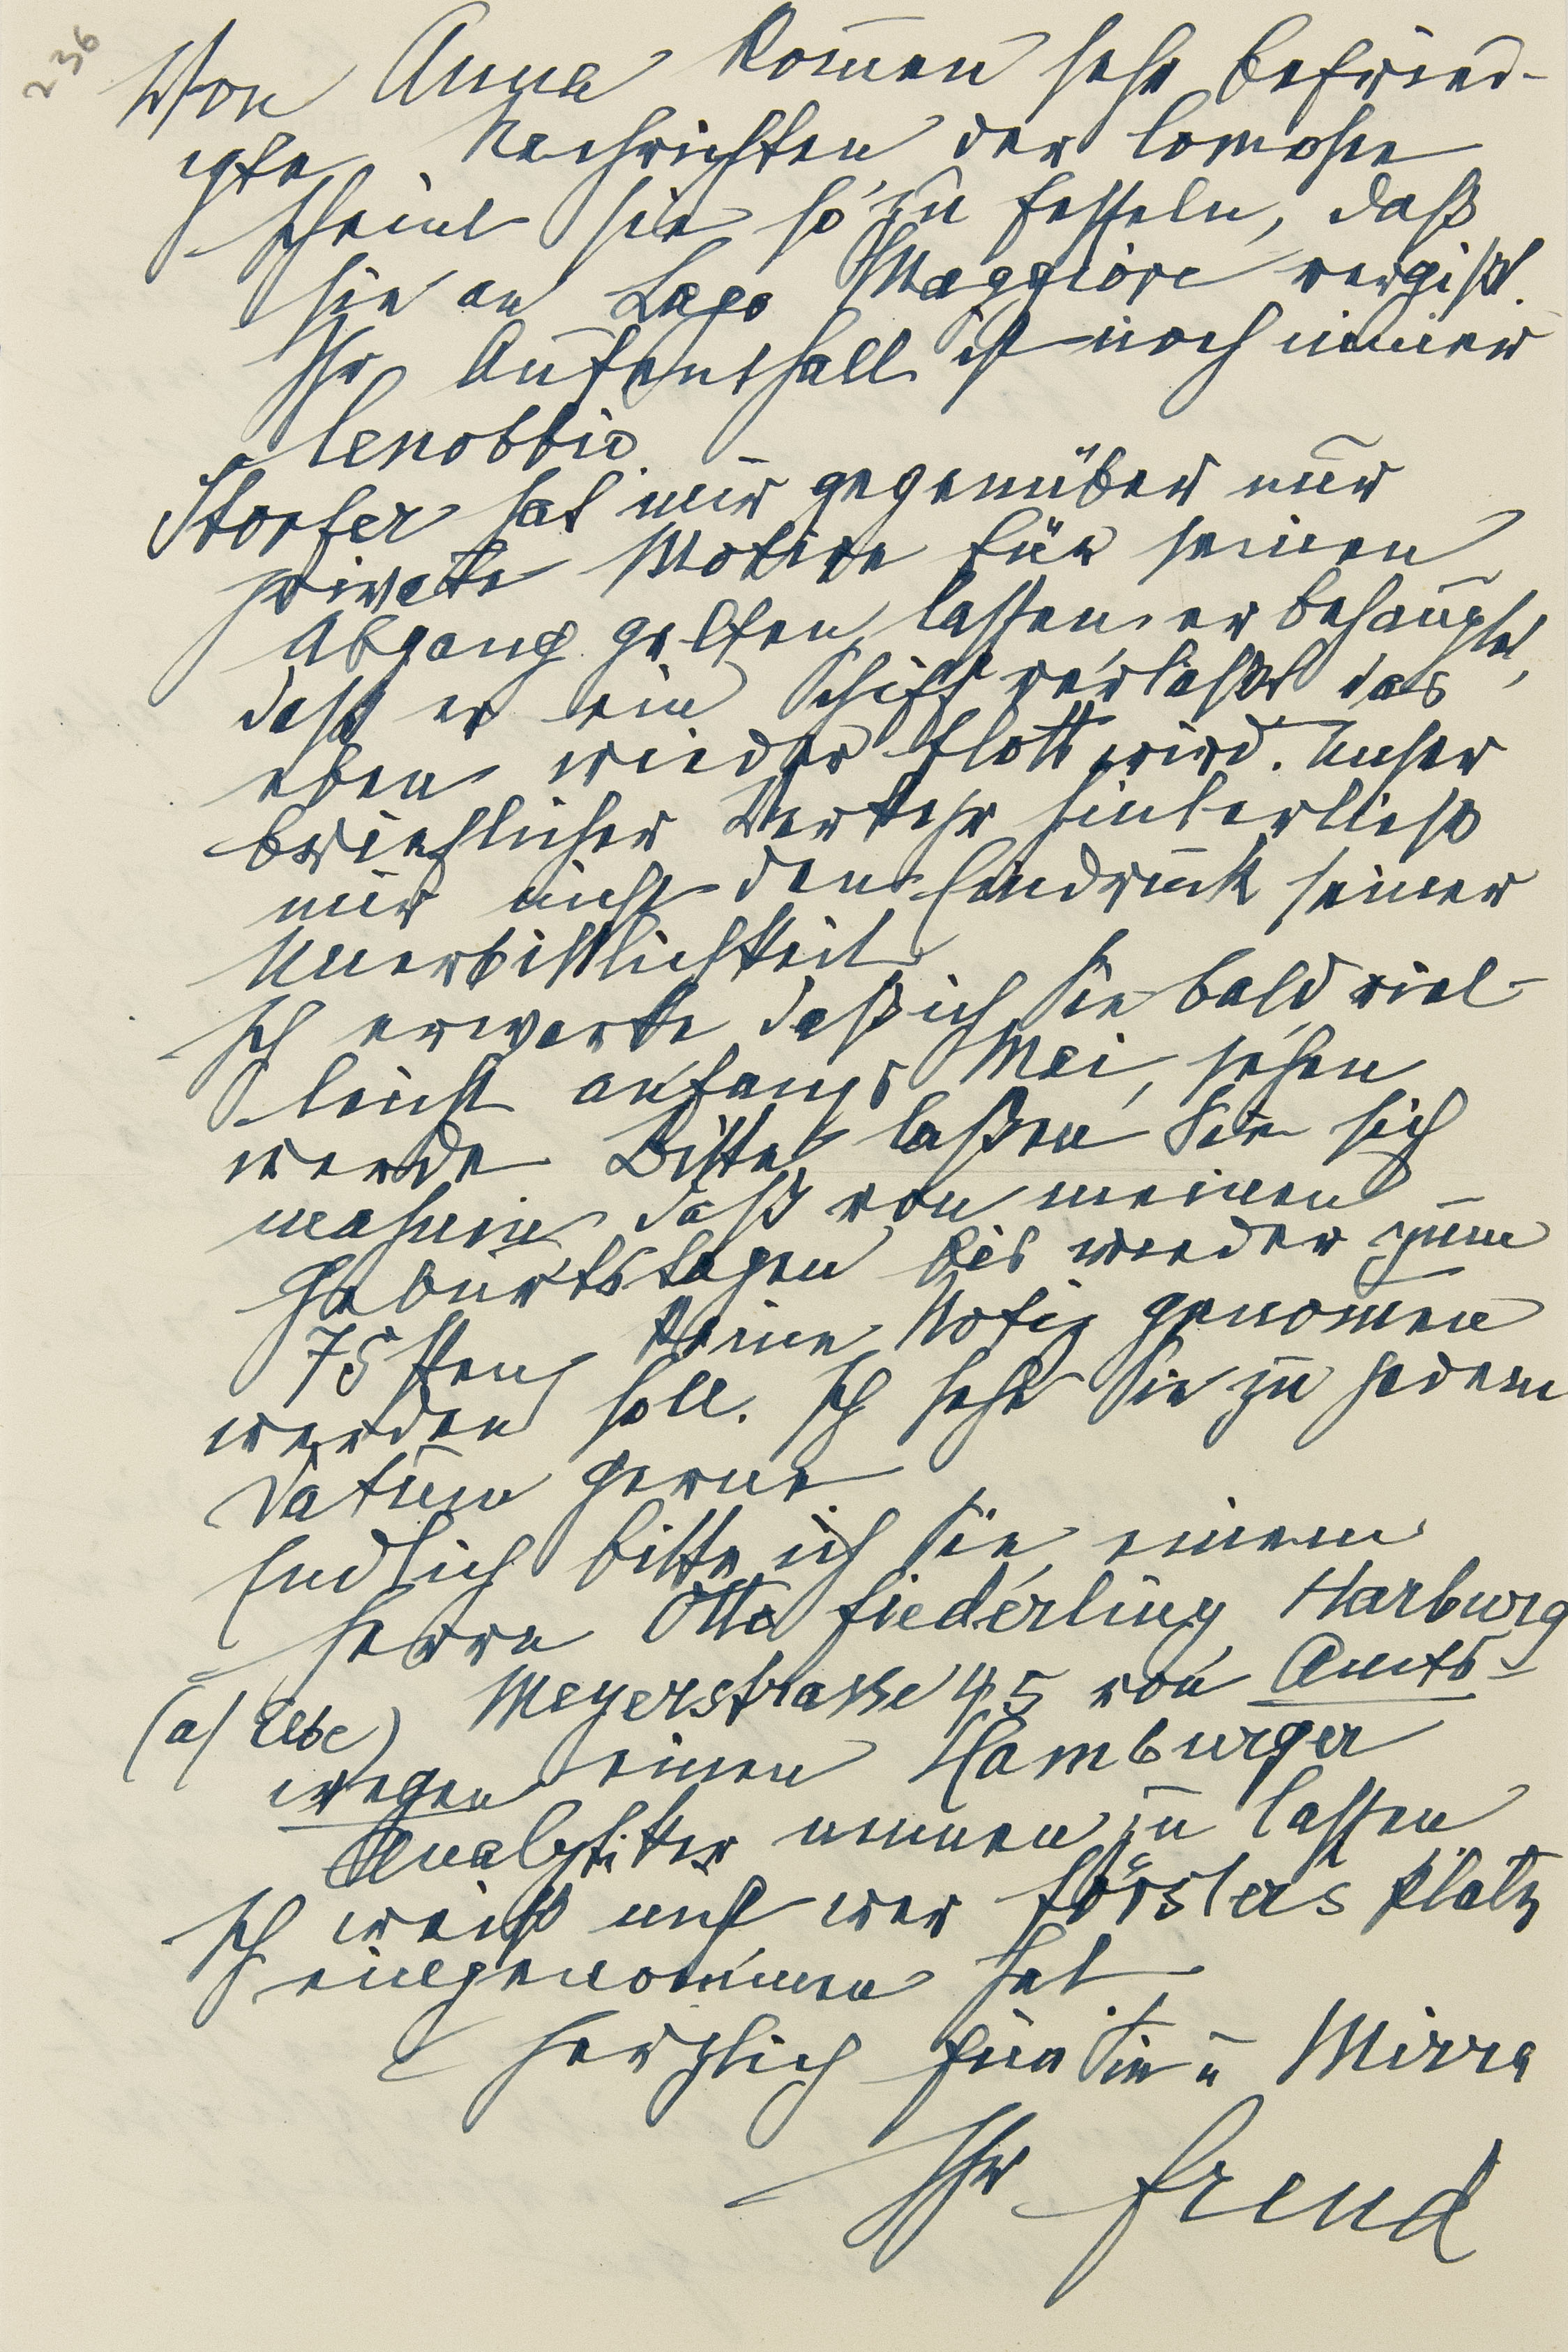 236
Von Anna kommen sehr befried-
igte Nachrichten der Comosee
scheint sie so zu fesseln, daß
sie an Lago Maggiore vergißt.
Ihr Aufenthalt ist noch immer
Cenobbio.
Storfer hat mir gegenüber nur
private Motive für seinen
Abgang gelten lassen, er behauptet,
daß er ein Schiff verläßt das
eben wieder flott wird. Unser
brieflicher Verkehr hinterließ
mir nicht den Eindruck seiner
Unerbittlichkeit.
Ich erwarte daß ich Sie bald viel-
leicht anfangs Mai, sehen
werde. Bitte laßen Sie sich
mahnen daß von meinen
Geburtstagen bis wieder zum
75sten keine Notiz genommen
werden soll. Ich sehe Sie zu jedem
Datum gerne
Endlich bitte ich Sie einem
Herrn Otto Fiederling Harburg
(a/ Elbe) Meyerstrasse 45 von Amts-
wegen einen Hamburger
Analytiker nennen zu lassen
Ich weiß nicht wer Försters Platz
eingenommen hat.
Herzlich für Sie u Mirra
Ihr Freud